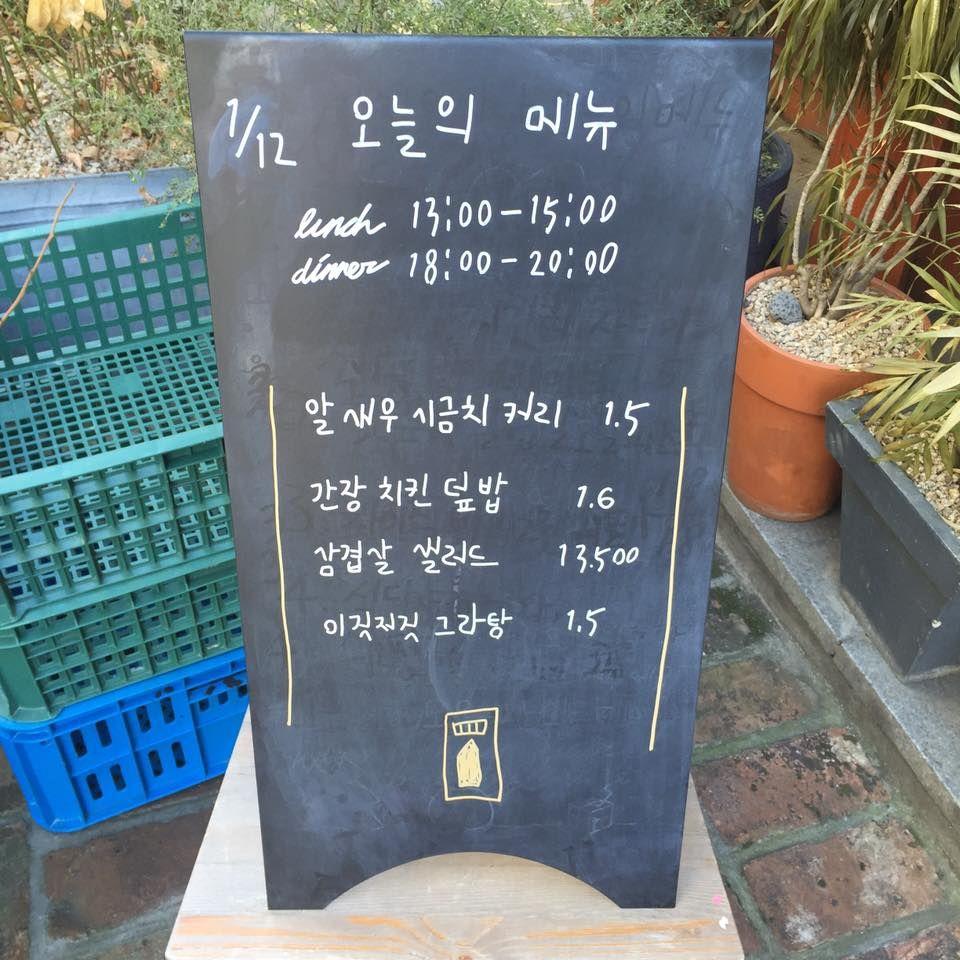 1/12 오늘의 메뉴
lunch 13:00-15:00
dinner 18:00-20:00
알새우 시금치 커리 1.5
간장 치킨 덮밥 1.6
삼겹살 샐러드 13.500
이짓저짓 그라탕 1.5